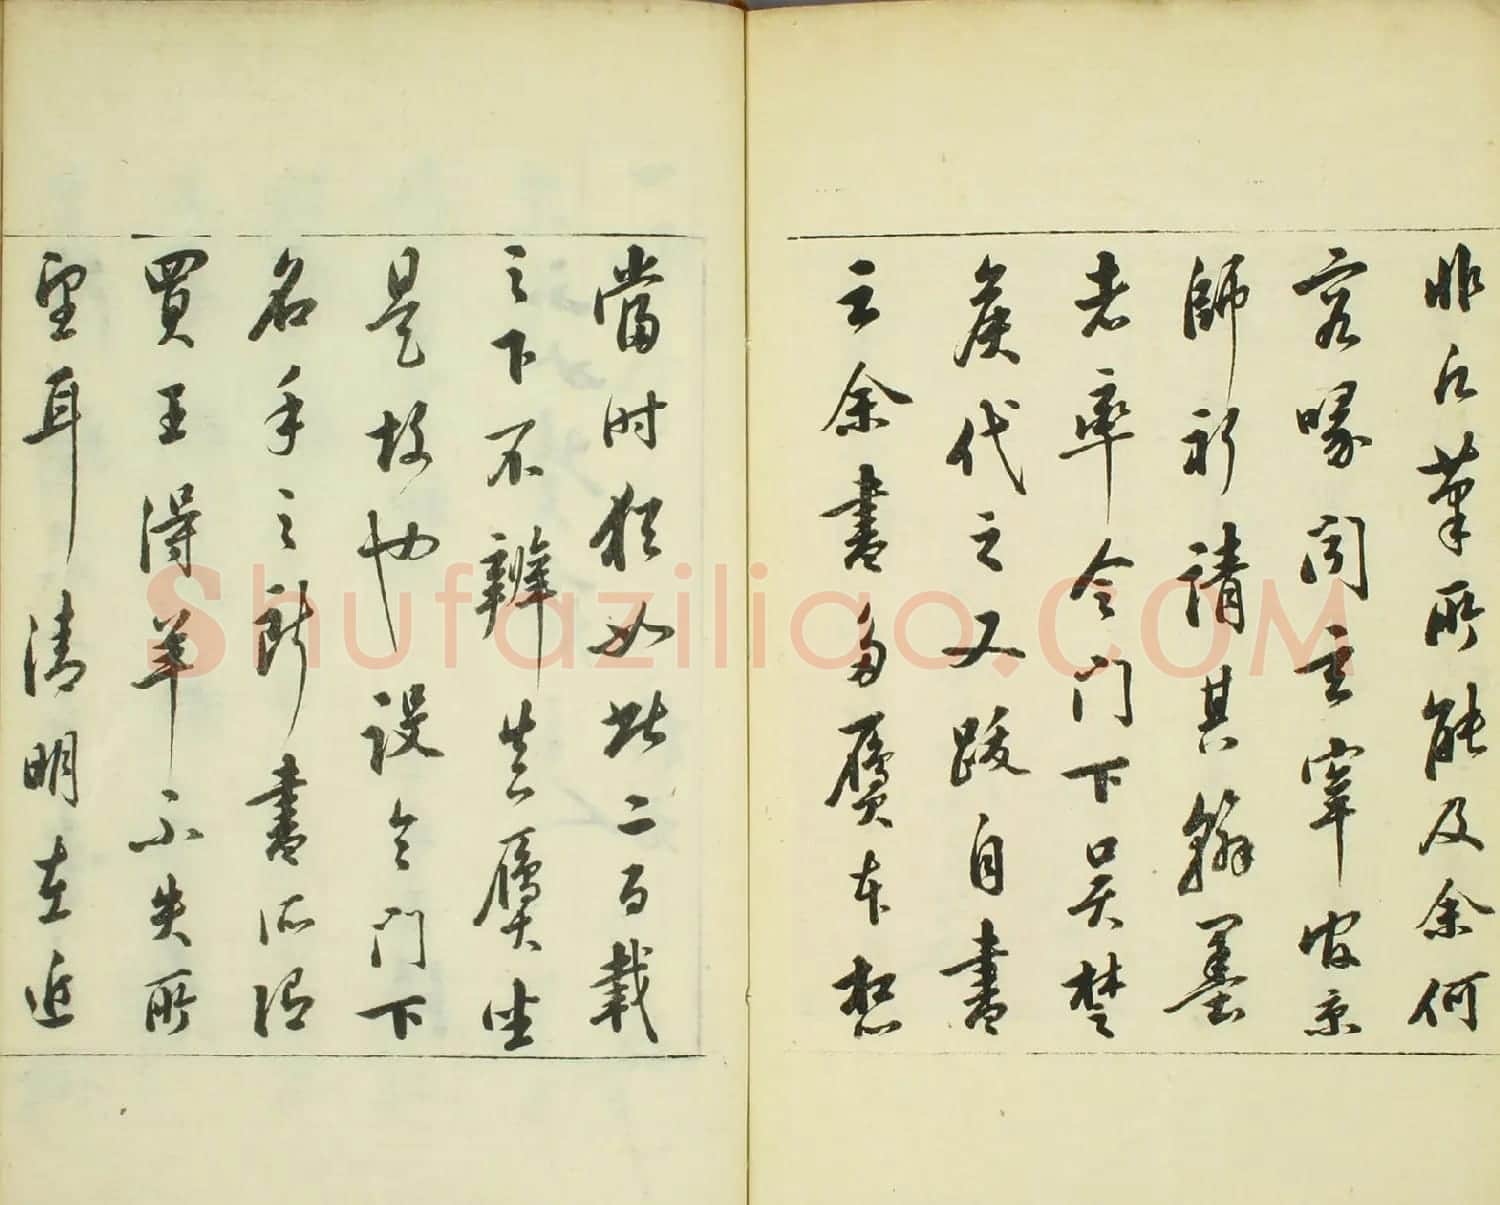 非下筆所能及余何
容喙聞玄宰官京
師祈請其翰墨
者率令門下吳楚
侯代之又跋自書
云余書多贗本想
當時猶如此二百載
之下不辨真贗坐
是故也設令門下
名手之所書所謂
買王得羊不失所
望耳清明在近
Shufaziliao.COM